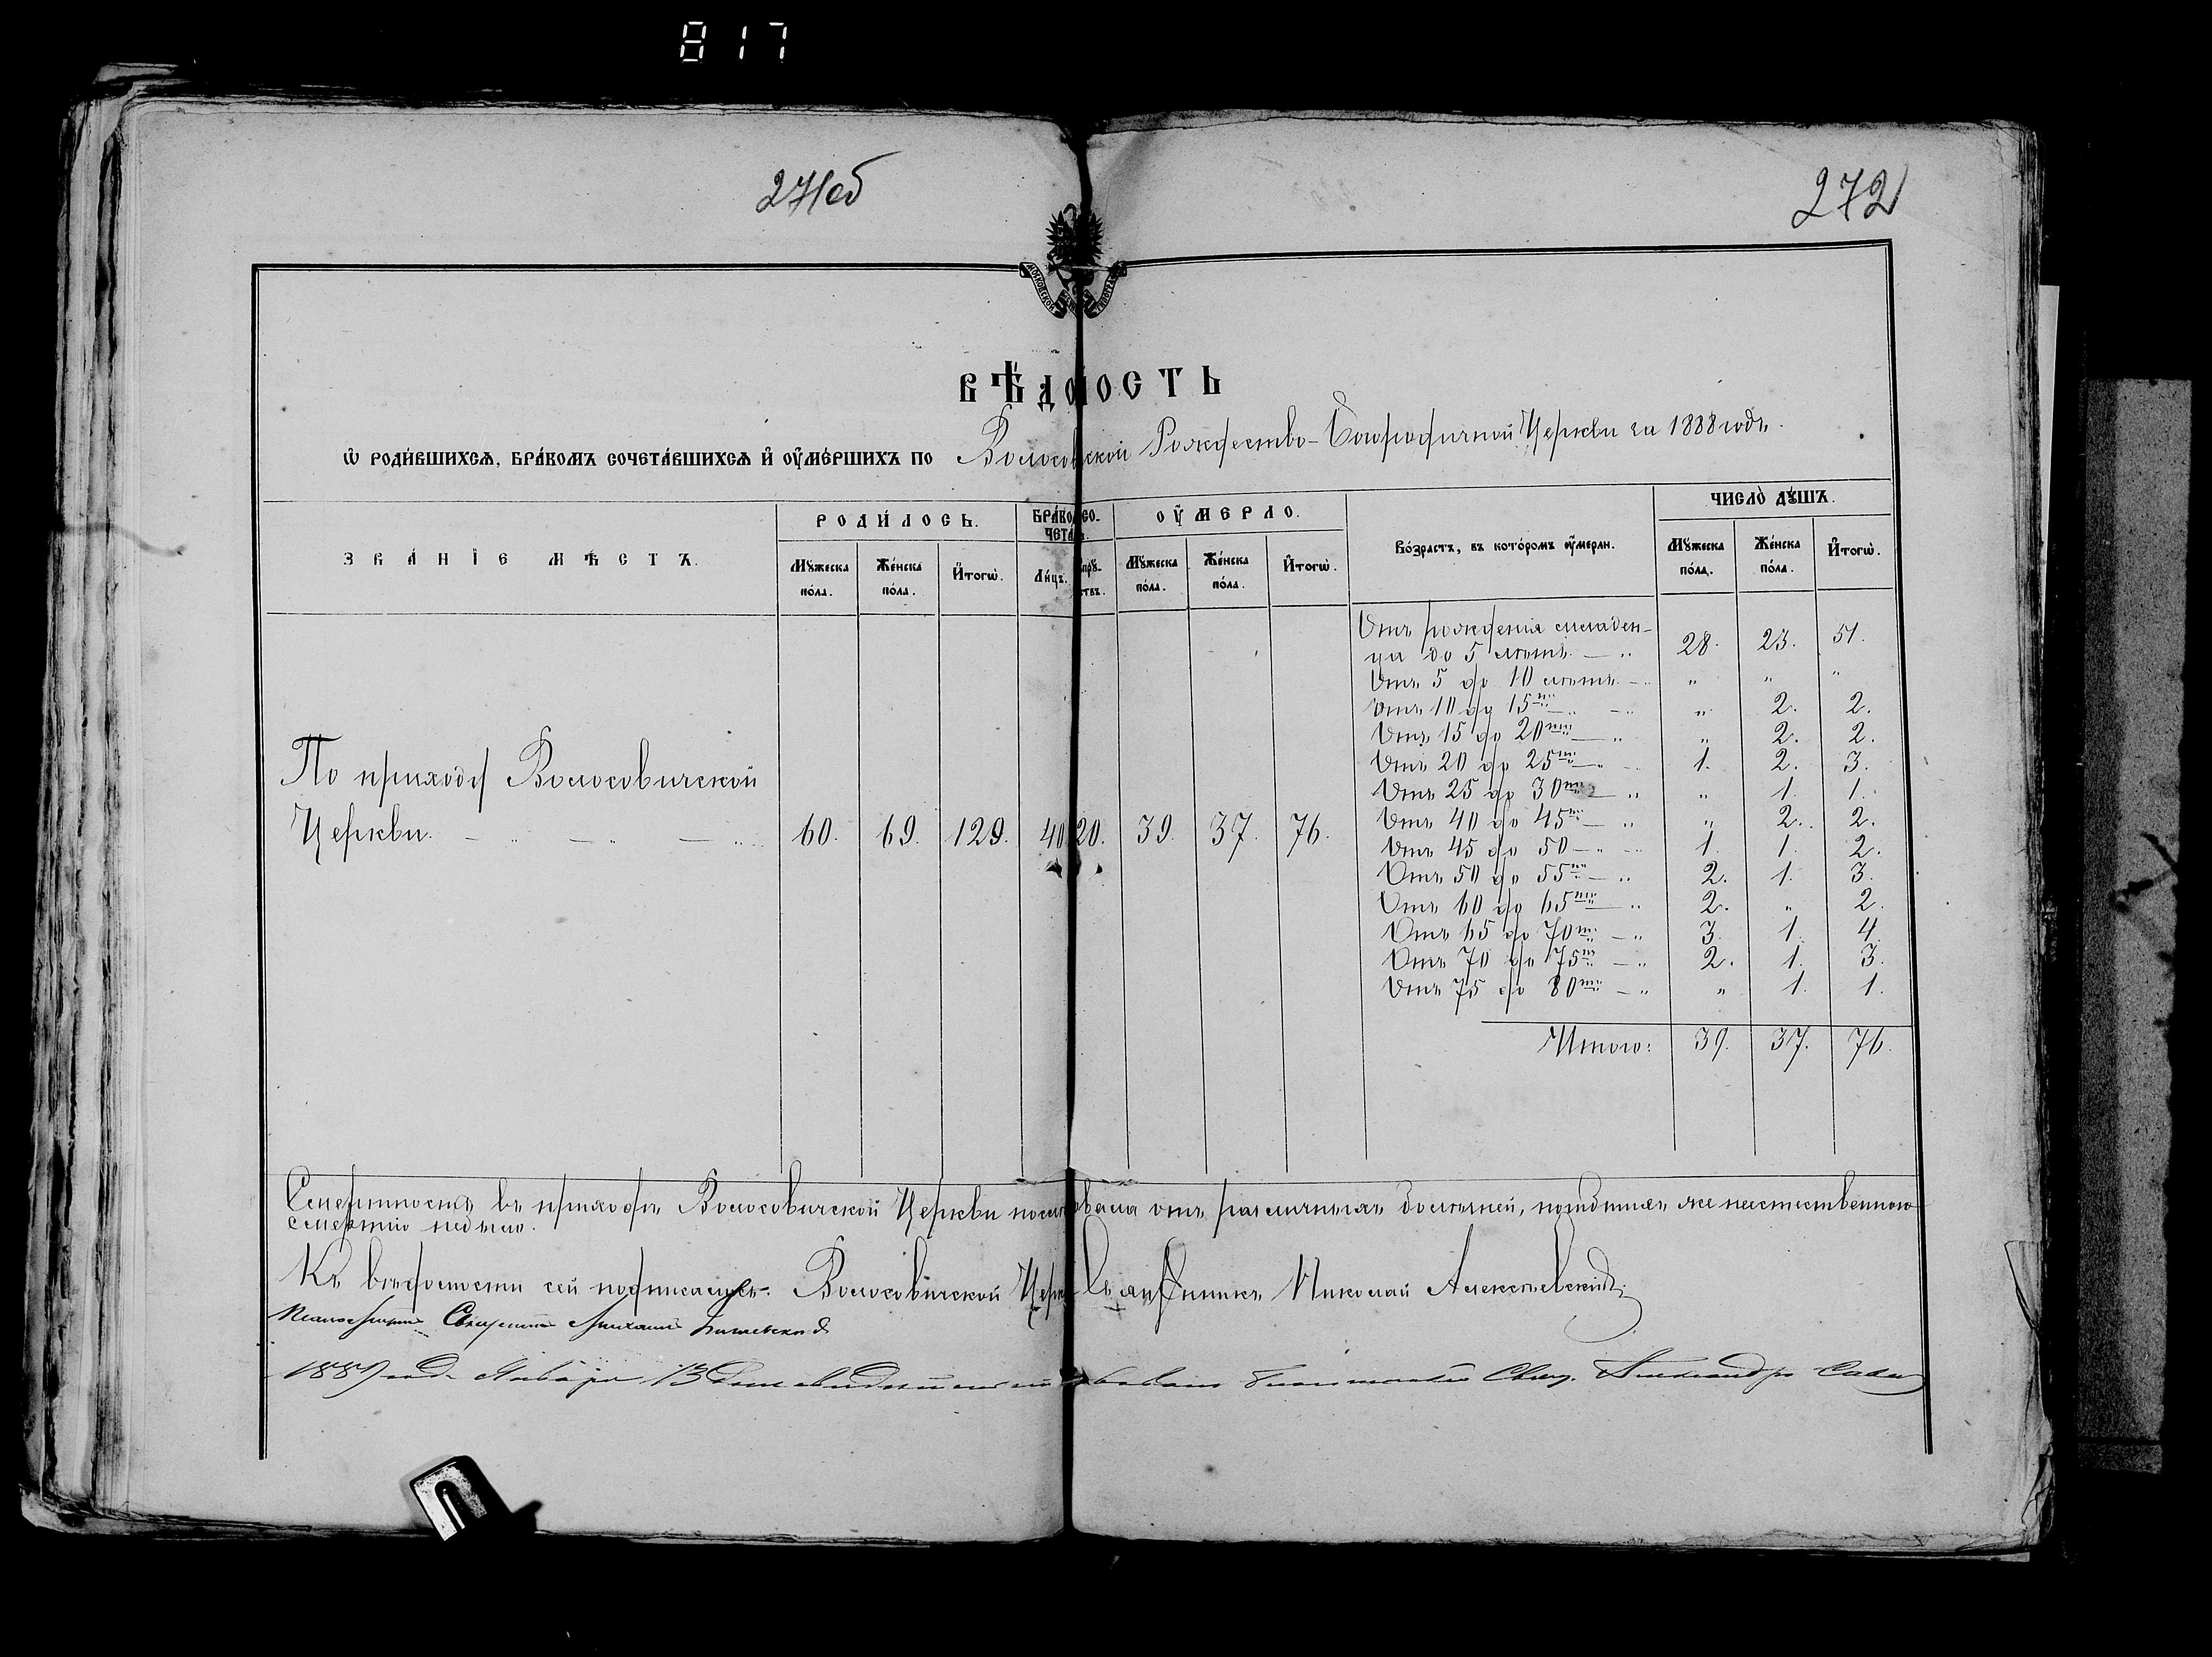 817
271об
272
МОСКОВСКОЙ
ВѢДОМОСТЬ
Ѡ РОДИ́ВШИХСѦ, БРА́КОМЪ СОЧЕТА́ВШИХСѦ И҆ ОУ҆МЕ́РШИХЪ ПО Волосовской Рождество-Богородичной Церкви за 1888 годъ.
ЗВА́НІЕ МѢ́СТЪ.
РОДИ́ЛОСЬ.
БРА́КОСОЧЕТА
ОУ҆МЕРЛО.
Во́зрастъ, въ кото́ромъ оу҆мерли.
ЧИСЛО̀ ДꙊ́ШЪ.
Мꙋ́жеска по́ла.
Же́нска по́ла.
И҆тогѡ̀.
Ли́цъ.
Мꙋ́жеска по́ла.
Же́нска по́ла.
И҆тогѡ̀.
Мꙋ́жеска по́ла.
Же́нска по́ла.
И҆тогѡ̀.
По приходу Волосовической
Церкви. 60. 69. 129. 40 20. 39. 37. 76.
Отъ рожденія младен-
ца до 5 лѣтъ. — „ 28. 23. 51.
Отъ 5 до 10 лѣтъ. — „ „ „ „
Отъ 10 до 15ти — „ „ 2. 2.
Отъ 15 до 20ти — „ „ 2. 2.
Отъ 20 до 25ти — „ 1. 2. 3.
Отъ 25 до 30ти — „ „ 1. 1.
Отъ 40 до 45ти — „ „ 2. 2.
Отъ 45 до 50 — „ 1. 1. 2.
Отъ 50 до 55ти — „ 2. 1. 3.
Отъ 60 до 65ти — „ 2. „ 2.
Отъ 65 до 70ти — „ 3. 1. 4.
Отъ 70 до 75ти — „ 2. 1. 3.
Отъ 75 до 80ти — „ „ 1. 1.
Итого: 39. 37. 76.
Смертность въ приходѣ Волосовической Церкви послѣдовала отъ различныхъ болѣзней, погибшихъ же неестественною
смертію не было.
Къ вѣдомости сей подписались: Волосовической Церкви Священникъ Николай Алексѣевскій
Псаломщикъ Михаилъ
1889 года Января 13 дня Благочинный Свящ. Александръ